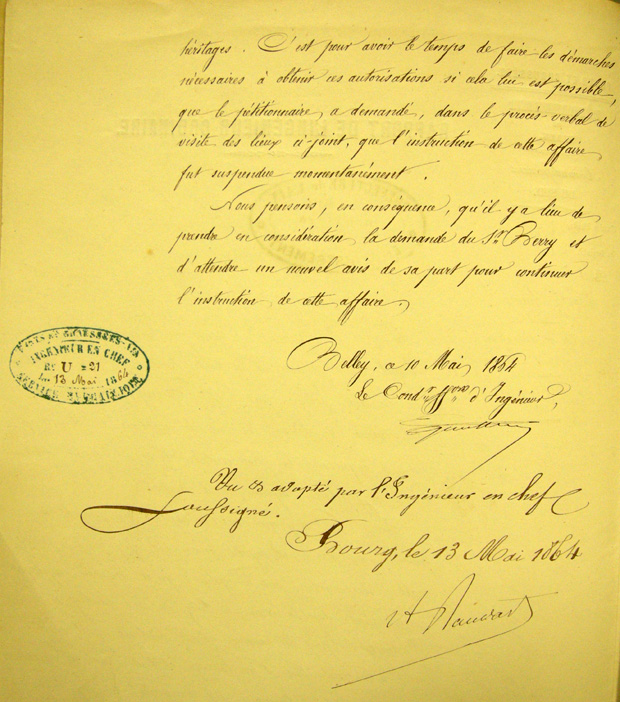 héritages. C'est pour avoir le temps de faire les démarches
nécessaires à obtenir ces autorisations si cela lui est possible,
que le pétitionnaire, a demandé, dans le procès-verbal de
visite des lieux ci-joint, que l'instruction de cette affaire
fut suspendue momentanément.
Nous pensons, en conséquence, qu'il y a lieu de
prendre en considération la demande du Sr Berry et
d'attendre un nouvel avis de sa part pour continuer
l'instruction de cette affaire.
Belley, ce 10 Mai 1864
Le Condr ffons d'Ingénieur,
PONTS ET CHAUSSÉES AIN
INGÉNIEUR EN CHEF
Rt U no 21
Le 13 Mai 1864
SERVICE HYDRAULIQUE
Vu & adopté par l'Ingénieur en chef
Soussigné.
Bourg, le 13 Mai 1864